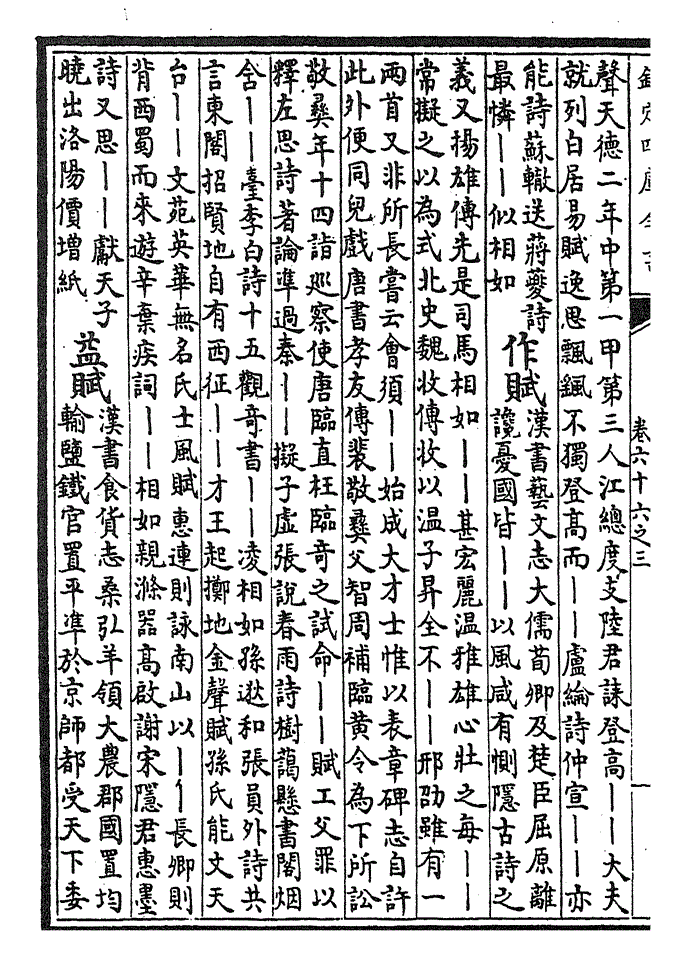 欽定四庫全書
卷六十六之三
聲天德二年中第一甲第三人江總度支陸君誄登高丨丨大夫
就列白居易賦逸思飄飆不獨登高而丨丨盧綸詩仲宣丨丨亦
能詩蘇轍送蔣夔詩
最憐丨丨似相如
作賦
漢書藝文志大儒荀卿及楚臣屈原離
讒憂國皆丨丨以風咸有惻隱古詩之
義又揚雄傳先是司馬相如丨丨甚宏麗温雅雄心壯之每丨丨
常擬之以為式北史魏收傳收以温子昇全不丨丨邢劭雖有一
兩首又非所長嘗云會須丨丨始成大才士惟以表章碑志自許
此外便同兒戲唐書孝友傳裴敬彞父智周補臨黄令為下所訟
敬彞年十四詣巡察使唐臨直枉臨竒之試命丨丨賦工父罪以
釋左思詩著論準過秦丨丨擬子虛張說春雨詩樹藹懸書閣烟
含丨丨臺李白詩十五觀竒書丨丨凌相如孫逖和張員外詩共
言東閣招賢地自有西征丨丨才王起擲地金聲賦孫氏能文天
台丨丨文苑英華無名氏士風賦惠連則詠南山以丨丨長卿則
背西蜀而來遊辛棄疾詞丨丨相如親滌器高啟謝宋隱君惠墨
詩又思丨丨獻天子
曉出洛陽價增紙
益賦
漢書食貨志桑弘羊領大農郡國置均
輸鹽鐵官置平準於京師都受天下委